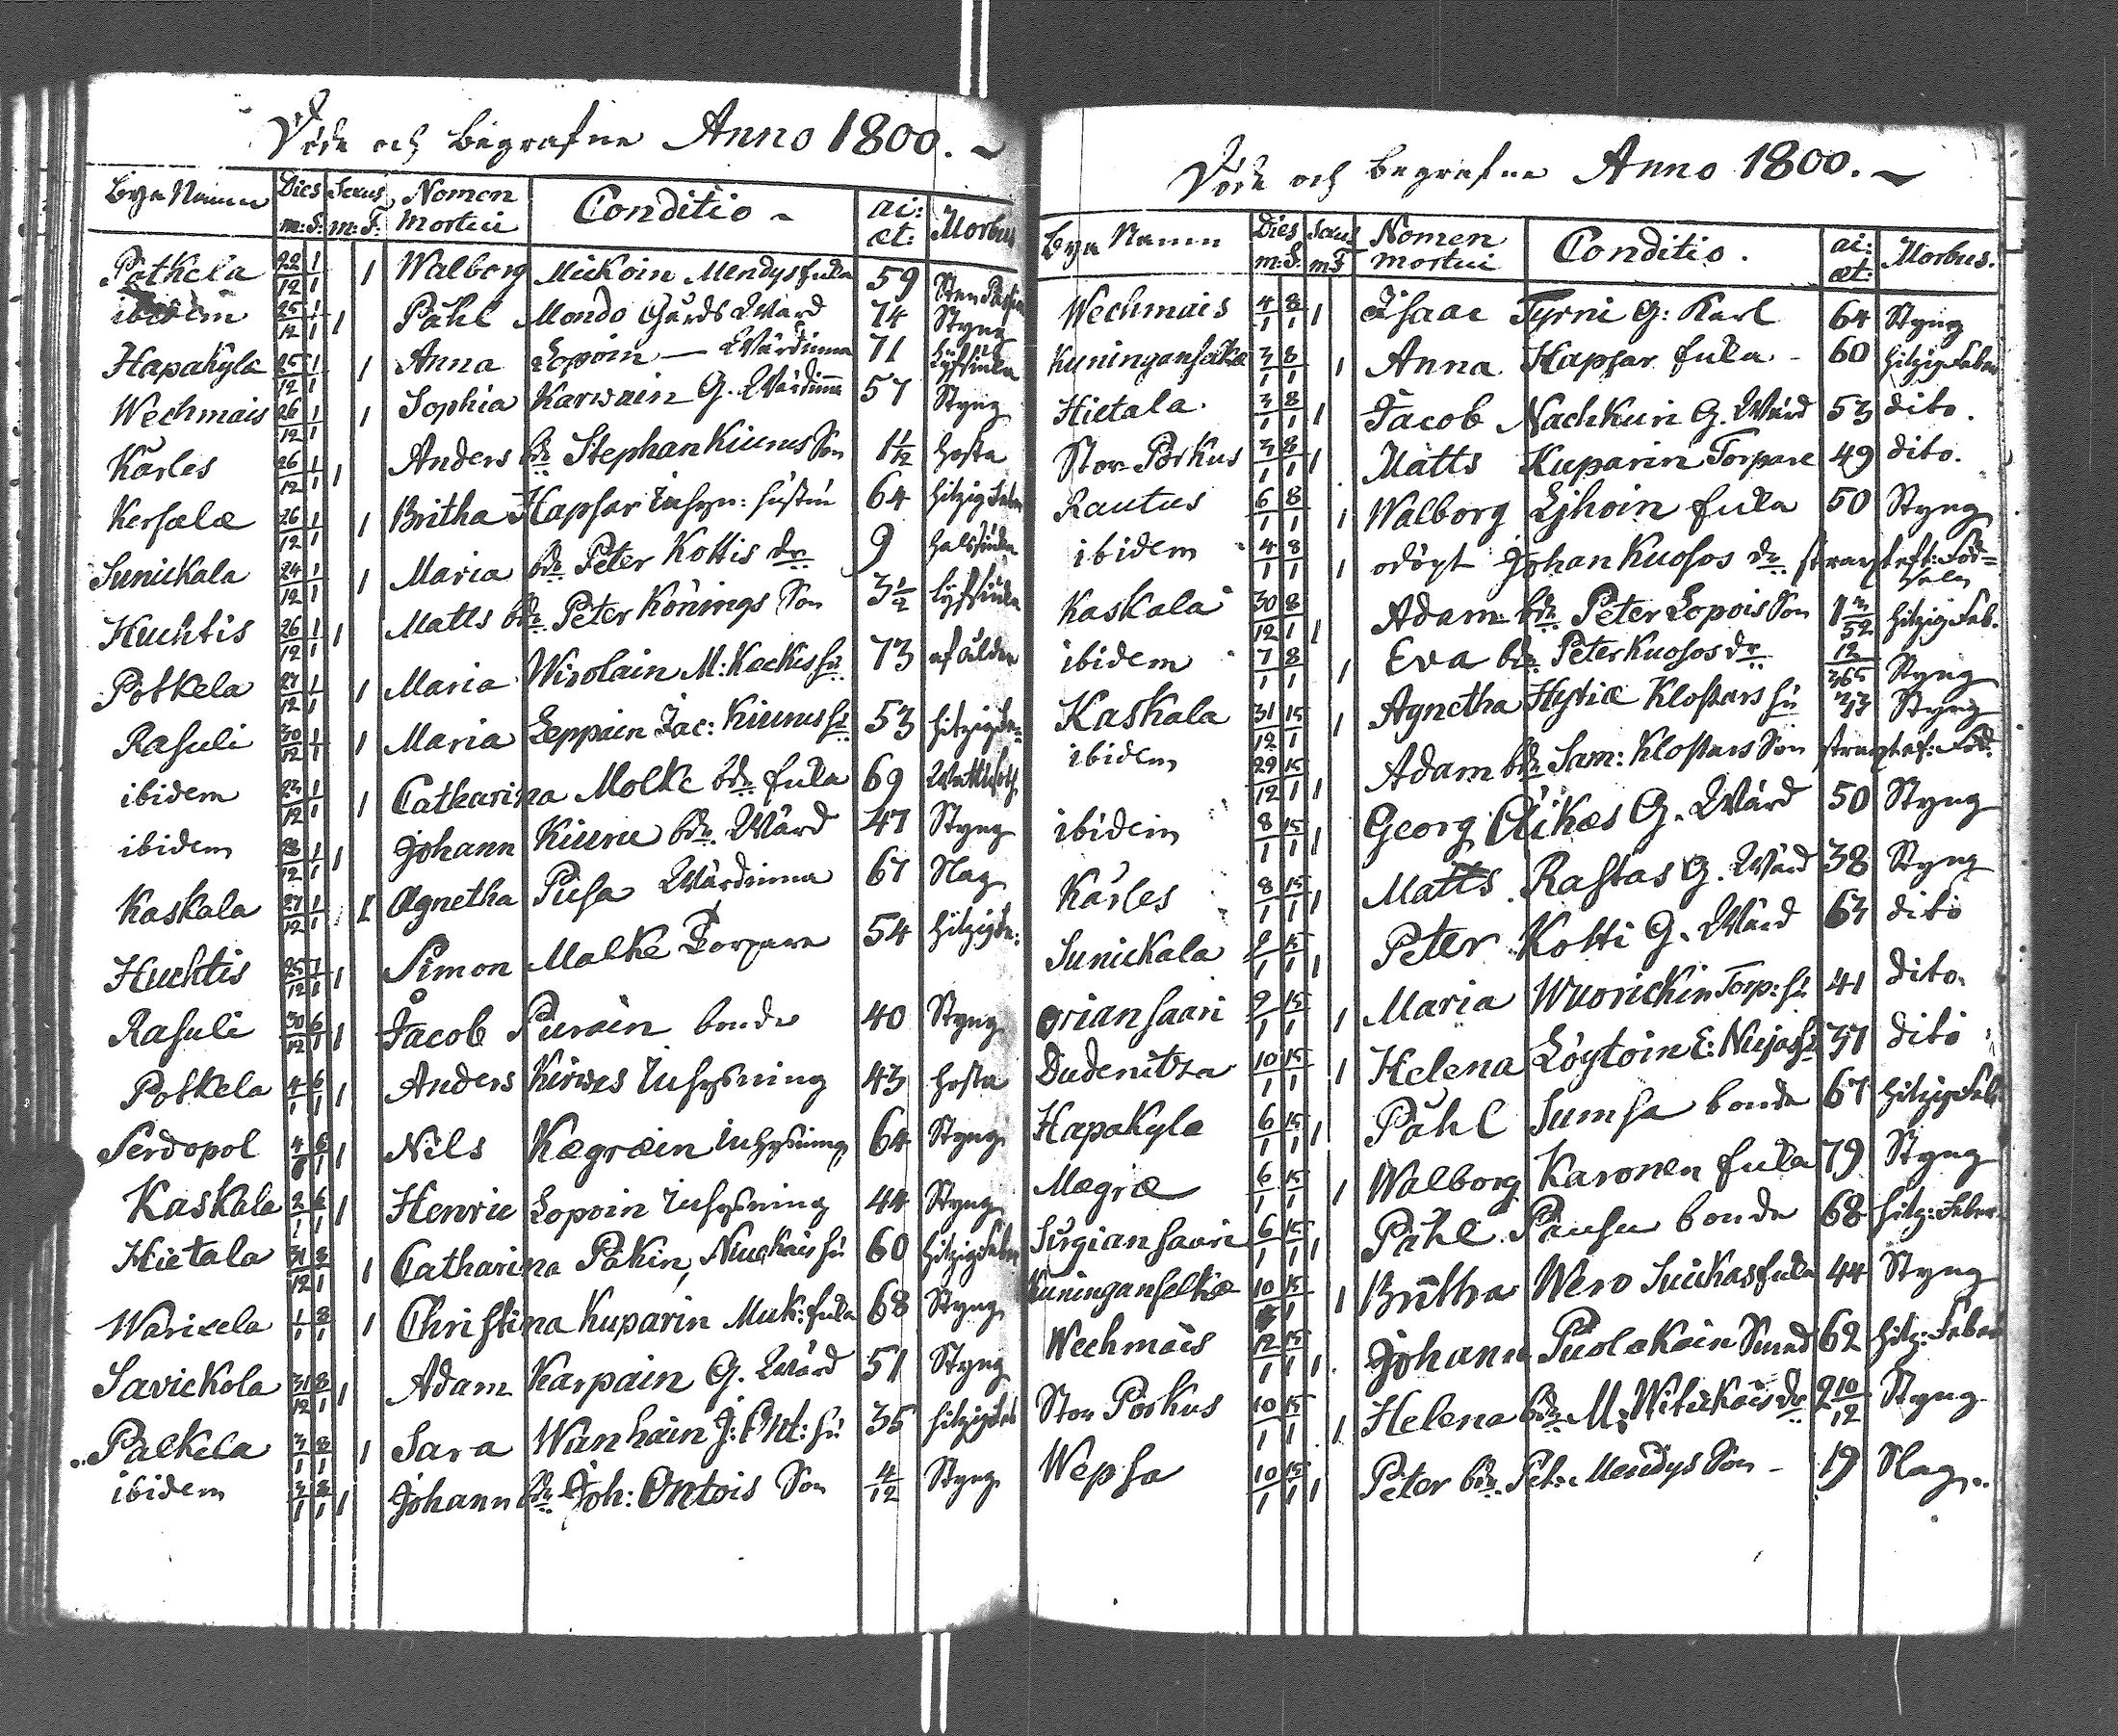 Döde och begrafne Anno 1800.
Bya Namn Dies m: S: Sexus m: F: Nomen Mortui Conditio ai: æt: Morbus
Potkela 22/12 1/1 1 Walborg Mickoin Mendys Enka 59 Sten Passion
ibidem 25/12 1/1 1 Påhl Mondo Gårds Wärd 74 Styng
Hapakylä 25/12 1/1 1 Anna Lopoin — Wärdinna 71 Lyfsiuka
Wechmais 26/12 1/1 1 Sophia Karwain G. Wärdinna 57 Styng
Karles 26/12 1/1 1 Anders bd: Stephan Kiurus Son 1 1/12 hosta
Kersälä 26/12 1/1 1 Britha Hapsar Inhys: hustru 64 hitzig Feber
Sunickala 24/12 1/1 1 Maria bd: Peter Kottis dr 9 halssiuka
Huchtis 26/12 1/1 1 Matts bd: Peter Könings Son 3 1/2 Lyfsiuka
Potkela 27/12 1/1 1 Maria Wirolain M: Keckis hu: 73 af ålder
Rasuli 30/12 1/1 1 Maria Leppain Jac: Kiurus hu: 53 hitzig Fe:
ibidem 1/1 1 Catharina Molke bd: Enka 69 Wattusot
ibidem 28/12 1/1 1 Johann Kiuru bd: Wärd 47 Styng
Kaskala 27/12 1/1 1 Agnetha Pusa Wärdinna 67 Slag
Huchtis 25/12 1/1 1 Simon Malke Torpare 54 hitzig Fe:
Rasuli 30/12 6/1 1 Jacob Purain bonde 40 Styng
Potkela 4/1 6/1 1 Anders Kirwes Inhysning 43 hosta
Serdopol 4/1 6/1 1 Nils Kægræin Inhysning 64 Styng
Kaskala 2/1 6/1 1 Henric Lopoin Inhysning 44 Styng
Hietala 31/12 8/1 1 Catharina Pakin, Nuckais hu 60 hitzig Feber
Warikela 1/1 8/1 1 Christina Kuparin Muk: Enka 68 Styng
Savickola 31/12 8/1 1 Adam Karpain G. Wärd 51 Styng
Palkela 3/1 8/1 1 Sara Wanhain J: Ont: hu 35 hitzig Feb
ibidem 3/1 8/1 1 Johann bd: Joh: Ontois Son 4/12 Styng
Döde och begrafne Anno 1800.
Bya Namn Dies m: S: Sexus m F Nomen mortui Conditio. ai: æt: Morbus.
Wechmais 4/1 8/1 1 Isaac Tyrni G: Karl 64 Styng
Kuninganselkæ 3/1 8/1 1 Anna Hapsar Enka - 60 hitzig Feber
Hietala. 3/1 8/1 1 Jacob Nachkuri G. Wärd 53 dito.
Stor Pörkus 3/1 8/1 1 Matts Kuparin Torpare 49 dito.
Rautus 6/1 8/1 1 Walborg Ljhoin Enka 50 Styng
ibidem 4/1 8/1 1 odöpt Johan Kuosos dr strax eft: Föd=
selen
Kaskala 30/12 8/1 1 Adam bd: Peter Lopois Son 1 3/52 hitzig Feb.
ibidem 7/1 8/1 1 Eva bd: Peter Kuosos dr 12/365 Styng
Kaskala 31/12 15/1 1 Agnetha Hytiæ Klostars hu Styng
ibidem 29/12 15/1 1 Adam bd: Sam: Klostars Son strax ef: Föd:
ibidem 8/1 15/1 1 Georg Äikæs G. Wärd 50 Styng
Kärles 8/1 15/1 1 Matts Rastas G. Wärd 38 Styng
Sunickala 9/1 15/1 1 Peter Kotti G. Wärd 63 dito
Orjansaari 9/1 15/1 1 Maria Wuorickin Torp: hu 41 dito.
Dudenitza 10/1 15/1 1 Helena Löytoin E: Nujas hu 37 dito
Hapakyle 6/1 15/1 1 Påhl Sumsa bonde 67 hitzig Feb
Mægræ 6/1 15/1 1 Walborg Karonen Enka 79 Styng
Surgiansaari 6/1 15/1 1 Påhl Pausu bonde 68 hitz: Feber
Kuninganselkæ 10/1 15/1 1 Britha Wero Suickas Enka 44 Styng
Wechmais 12/1 15/1 1 Johann Puolakain Smed 62 hitz: Feber
Stor Pörkus 10/1 15/1 1 Helena bd: M: Witickais dr 2 10/12 Styng
Wepsa 10/1 15/1 1 Peter bd: Pet: Mendys Son - 19 Slag.